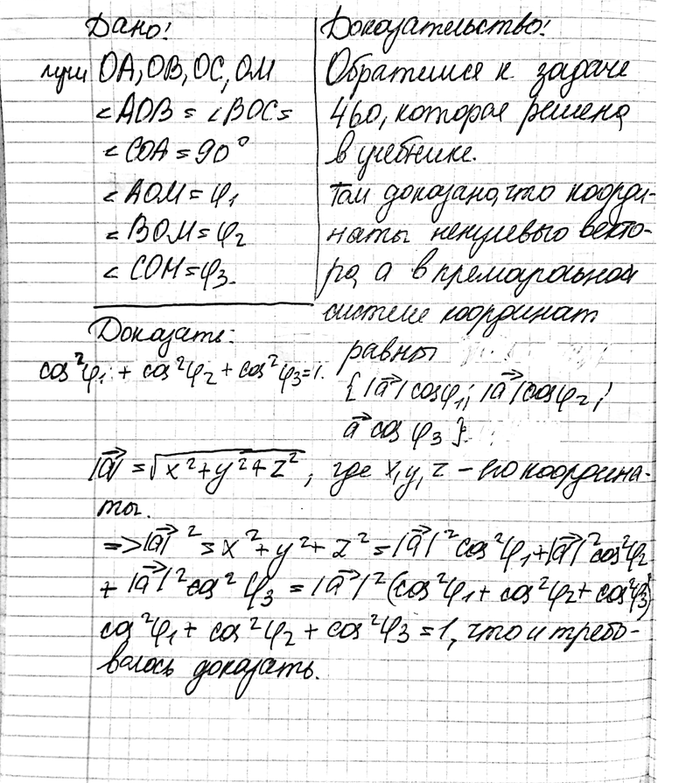 Дано:
лучи OA, OB, OC, OM
∠AOB = ∠BOC =
∠COA = 90°
∠AOM = φ₁
∠BOM = φ₂
∠COM = φ₃.
Доказать:
cos²φ₁ + cos²φ₂ + cos²φ₃ = 1.
Доказательство:
Обратимся к задаче
460, которая решена
в учебнике.
Там доказано, что коорди-
наты ненулевого векто-
ра a в прямоугольной
системе координат
равны
{|a⃗|cosφ₁; |a⃗|cosφ₂;
a⃗ cos φ₃}.
|a⃗| = √x² + y² + z², где x, y, z – его координа-
ты.
=> |a⃗|² = x² + y² + z² = |a⃗|²cos²φ₁ + |a⃗|²cos²φ₂
+ |a⃗|²cos²φ₃ = |a⃗|²(cos²φ₁ + cos²φ₂ + cos²φ₃)
cos²φ₁ + cos²φ₂ + cos²φ₃ = 1, что и требо-
валось доказать.